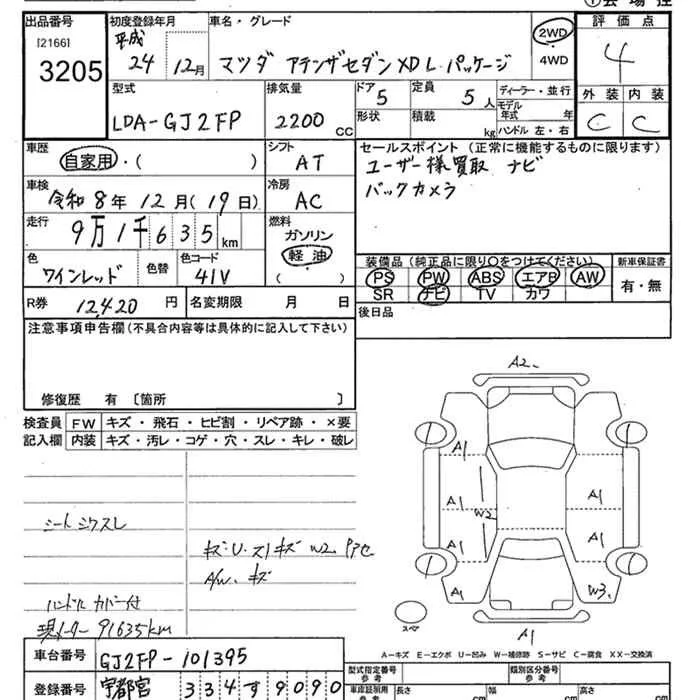 ①会場控
出品番号 初度登録年月 車名・グレード 評価点
[2166]
3205
平成
24 12月 マツダ アテンザセダン XD L パッケージ 2WD 4WD 4
型式 排気量 ドア 定員 ディーラー・並行 外装 内装
LDA-GJ2FP 2200 CC 5 5人 モデル年式 年 C C
形状 積載 kg ハンドル 左・右
車歴 シフト セールスポイント(正常に機能するものに限ります)
自家用・( ) AT ユーザー様買取 ナビ
車検 冷房 バックカメラ
令和8年12月(19日) AC
走行 燃料
9万1千635km ガソリン
軽油
( )
装備品(純正品に限り○をつけてください) 新車保証書
色 色替 色コード PS PW ABS エアB AW 有・無
ワインレッド 41V SR ナビ TV カワ
R券 12,420円 名変期限 月 日 後日品
注意事項申告欄(不具合内容等は具体的に記入して下さい)
修復歴 有〔箇所 〕
検査員 FW キズ・飛石・ヒビ割・リペア跡・×要
記入欄 内装 キズ・汚レ・コゲ・穴・スレ・キレ・破レ
A2.
A1
A1 A1
W2
A1 A1
A1 W3.
A1
スペア
シートシワスレ
キズ・U・スリキズ W2
A/W. キズ
ハンドルカバー付
現メーター 91635km
A-キズ E-エクボ U-凹み W-補修跡 S-サビ C-腐食 XX-交換済
車台番号 GJ2FP-101395
型式指定番号 参考 類別区分番号 参考
登録番号 宇都宮 334 す 9090
車庫証明用 参考 長さ cm 幅 cm 高さ cm